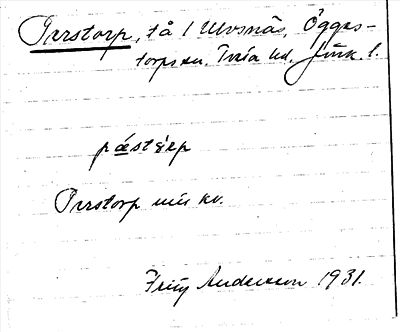 Parstorp, på 1 Ulvsnäs, Öggas-
torps sn, Tveta hd, Jönk. l.
pæstǫrp
Parstorp min kv.
Fritz Andersson 1931.